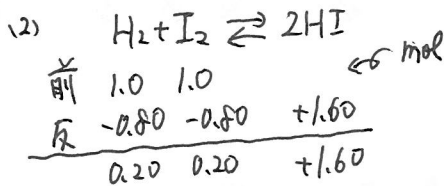 (2) H₂ + I₂ ⇄ 2HI
前 1.0 1.0 ← mol
反 -0.80 -0.80 +1.60
0.20 0.20 +1.60